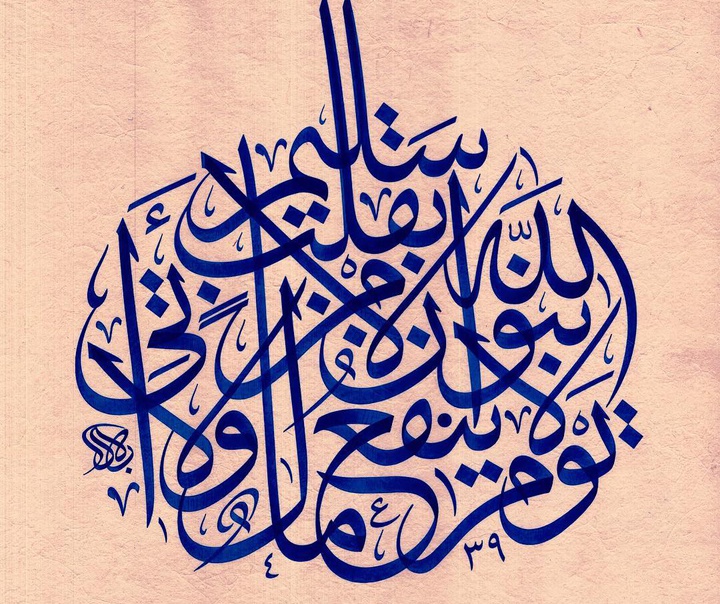 يوم لا ينفع مال ولا
بنون إلا من أتى
الله بقلب سليم
١٤٣٩